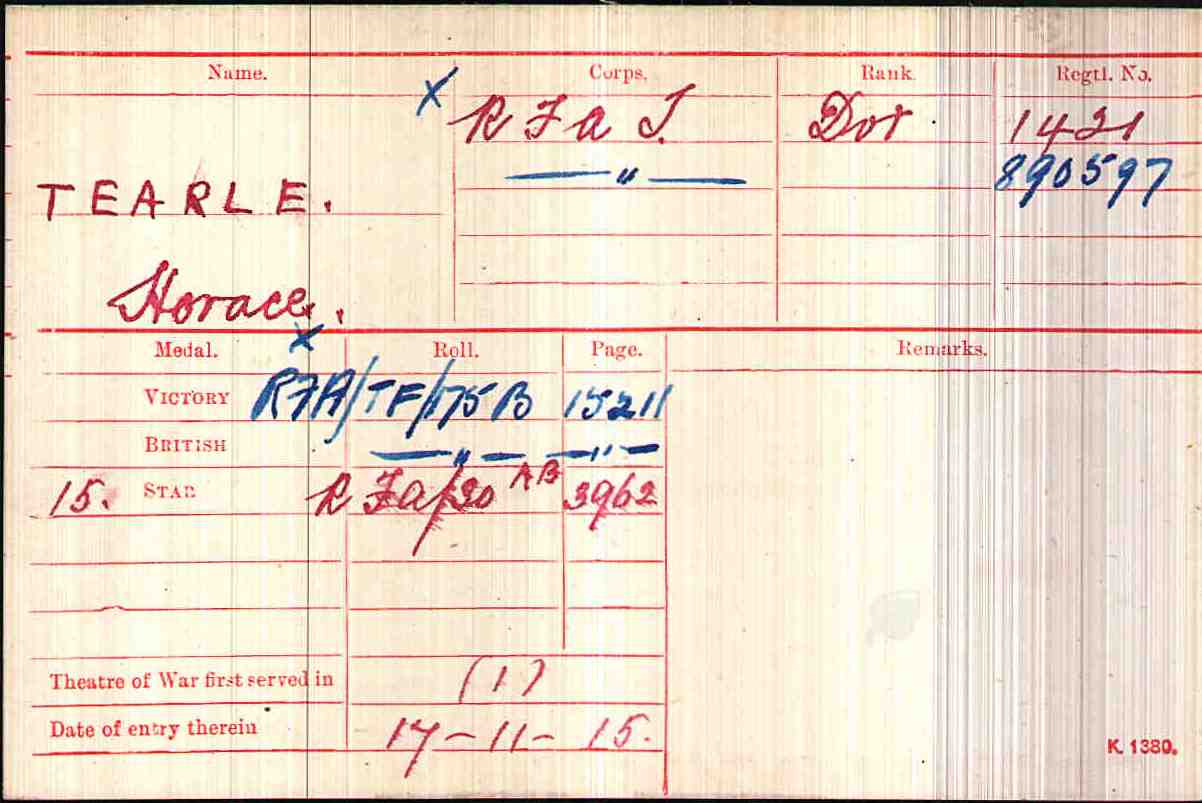 Name. Corps. Rank Regtl. No.
x R F A T. Dvr 1421
TEARLE. —— " —— 890597
Horace.
x
Medal. Roll. Page. Remarks.
VICTORY RFA/TF/175B 15211
BRITISH —— " — — " —
15. STAR R FA/30 AB 3962
Theatre of War first served in (1)
Date of entry therein 17-11-15.
K. 1380.